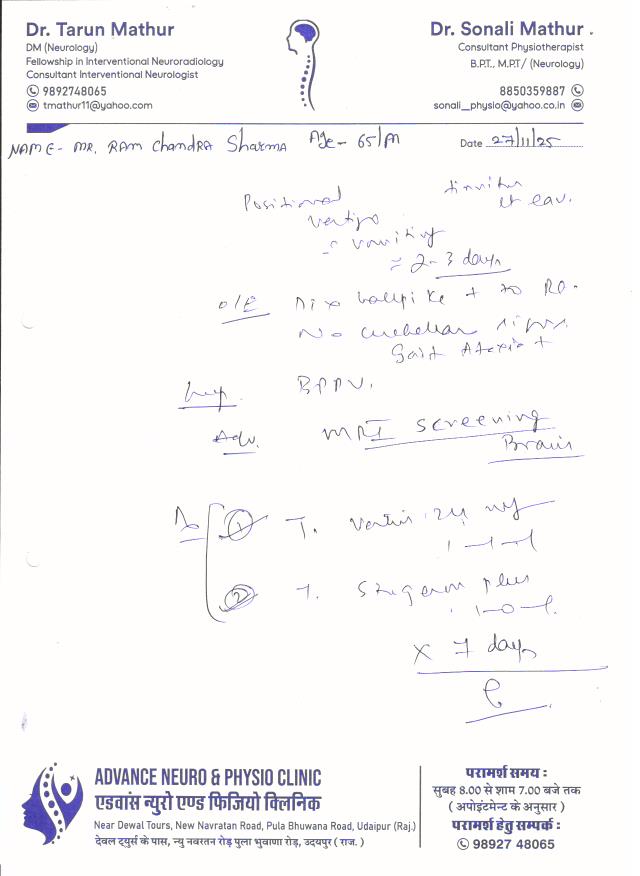 Dr. Tarun Mathur
DM (Neurology)
Fellowship in Interventional Neuroradiology
Consultant Interventional Neurologist
9892748065
tmathur11@yahoo.com
Dr. Sonali Mathur.
Consultant Physiotherapist
B.P.T., M.P.T/ (Neurology)
8850359887
sonali_physio@yahoo.co.in
NAME- MR. RAM ChandRA Sharma Age- 65/M
Date 27/11/25
Positional
vertigo
vomiting
≈ 2-3 days
tinnitus
ear.
O/E Dix hallpike + to Rt.
No cerebellar signs.
Gait Ataxia +
Imp. BPPV.
Adv. MRI Screening
Brain
① T. Vertin 24 mg
1-1-1
② T. Stugeron plus
1-0-1
x 7 days
ADVANCE NEURO & PHYSIO CLINIC
एडवांस न्युरो एण्ड फिजियो क्लिनिक
Near Dewal Tours, New Navratan Road, Pula Bhuwana Road, Udaipur (Raj.)
देवल ट्युर्स के पास, न्यु नवरतन रोड़ पुला भुवाणा रोड़, उदयपुर ( राज. )
परामर्श समय :
सुबह 8.00 से शाम 7.00 बजे तक
( अपोइंटमेन्ट के अनुसार )
परामर्श हेतु सम्पर्क :
98927 48065